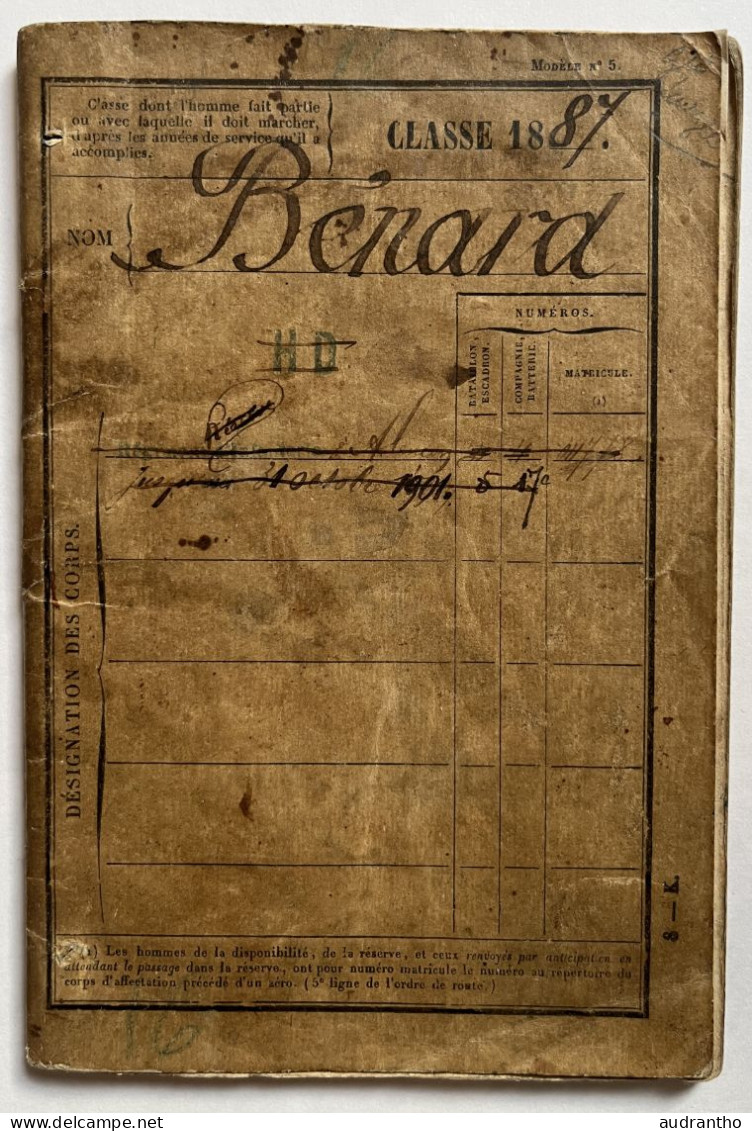 MODÈLE N° 5.
Classe dont l'homme fait partie
ou avec laquelle il doit marcher,
d'après les années de service qu'il a
accomplies.
CLASSE 1887.
NOM
Bénard
NUMÉROS.
BATAILLON, ESCADRON.
COMPAGNIE, BATTERIE.
MATRICULE.
(1)
H D
jusqu'au 31 octobre 1901. 5 17e
DÉSIGNATION DES CORPS.
8—K.
(1) Les hommes de la disponibilité, de la réserve, et ceux renvoyés par anticipation en
attendant le passage dans la réserve, ont pour numéro matricule le numéro au répertoire du
corps d'affectation précédé d'un zéro. (5e ligne de l'ordre de route.)
16
audrantho